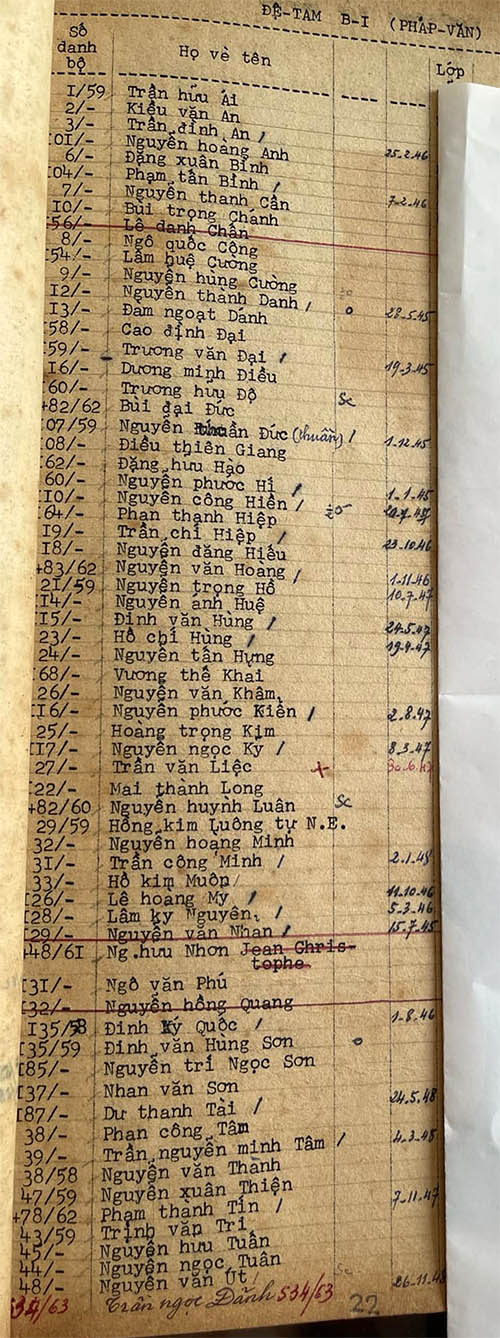 ĐỆ-TAM B-I (PHÁP-VĂN)
Số danh bộ Họ vè tên Lớp
I/59 Trần hữu Ái
2/- Kiều văn An
3/- Trần đình An /
IOI/- Nguyễn hoàng Anh 25.2.46
6/- Đặng xuân Bỉnh
IO4/- Phạm tấn Bỉnh /
7/- Nguyễn thanh Cần 7-2-46
IO/- Bùi trọng Chánh
I56/- Lê danh Chấn
8/- Ngô quốc Cộng
I54/- Lâm huệ Cường
9/- Nguyễn hùng Cường
I2/- Nguyễn thành Danh /
I3/- Đam ngoạt Dánh o 28-5.45
I58/- Cao định Đại
I59/- Trương văn Đại / 19-3.45
I6/- Dương minh Điều
I60/- Trương hưu Độ Sc
+82/62 Bùi đại Đức
I07/59 Nguyễn thuần Đức (thuần) / 1-12.45
I08/- Điều thiên Giang
I62/- Đặng hưu Hào
60/- Nguyễn phước Hỉ / 1-1-45
IIO/- Nguyễn công Hiền /
I64/- Phan thạnh Hiệp
I9/- Trần chí Hiệp / 23.10.46
I8/- Nguyễn đăng Hiếu
+83/62 Nguyễn văn Hoàng / 1-11.46
2I/59 Nguyễn trọng Hồ 10.7.47
II4/- Nguyễn ánh Huệ
II5/- Đinh văn Hùng / 24-5.47
23/- Hồ chí Hùng / 19-4-47
24/- Nguyễn tấn Hưng
I68/- Vương thế Khai
26/- Nguyễn văn Khâm
II6/- Nguyễn phước Kiển / 2.8.47
25/- Hoàng trọng Kim
II7/- Nguyễn ngọc Kỳ / 8-3.47
27/- Trần văn Liệc +
I22/- Mai thành Long
+82/60 Nguyễn huỳnh Luân Sc
29/59 Hồng kim Luông tự N.E.
32/- Nguyễn hoang Minh
3I/- Trần công Minh / 2.1.48
33/- Hồ kim Muôn
I26/- Lê hoàng My / 11.10.46
I28/- Lâm ky Nguyên / 5-3.46
I29/- Nguyễn văn Nhan / 15.7.45
+48/6I Ng.hưu Nhơn Jean Chris-
tophe
I3I/- Ngô văn Phú
I32/- Nguyễn hồng Quang
I35/58 Đinh Kỳ Quốc / 1-8.46
I35/59 Đinh văn Hùng Sơn o
I85/- Nguyễn trí Ngọc Sơn
I37/- Nhan văn Sơn
I87/- Dư thanh Tài / 24.5.48
38/- Phan công Tâm
39/- Trần nguyên minh Tâm / 4.3.48
38/58 Nguyễn văn Thành
47/59 Nguyễn xuân Thiện
+78/62 Phạm thành Tín / 7-11.47
43/59 Trịnh văn Tri
45/- Nguyễn hưu Tuấn
44/- Nguyễn ngọc Tuân
48/- Nguyễn văn Út Sc 26-11.48
534/63 Trần ngọc Dảnh 534/63 22